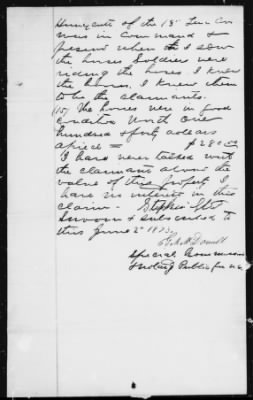 Huneycutt of the 13" Tenn Cav
was in Command &
present when I saw
the horses Soldiers were
riding the horses. I knew
the horses, I knew them
to be the claimants.
(15) The horses were in good
condition Worth One
hundred & forty dollars
apiece = $280.00
I have never talked with
the claimant about the
value of this property I
have no interest in this
claim - Stephen
Sworn & Subscribed to
this June 2" 1873
Special Commissioner
& Notary Public for N.C.